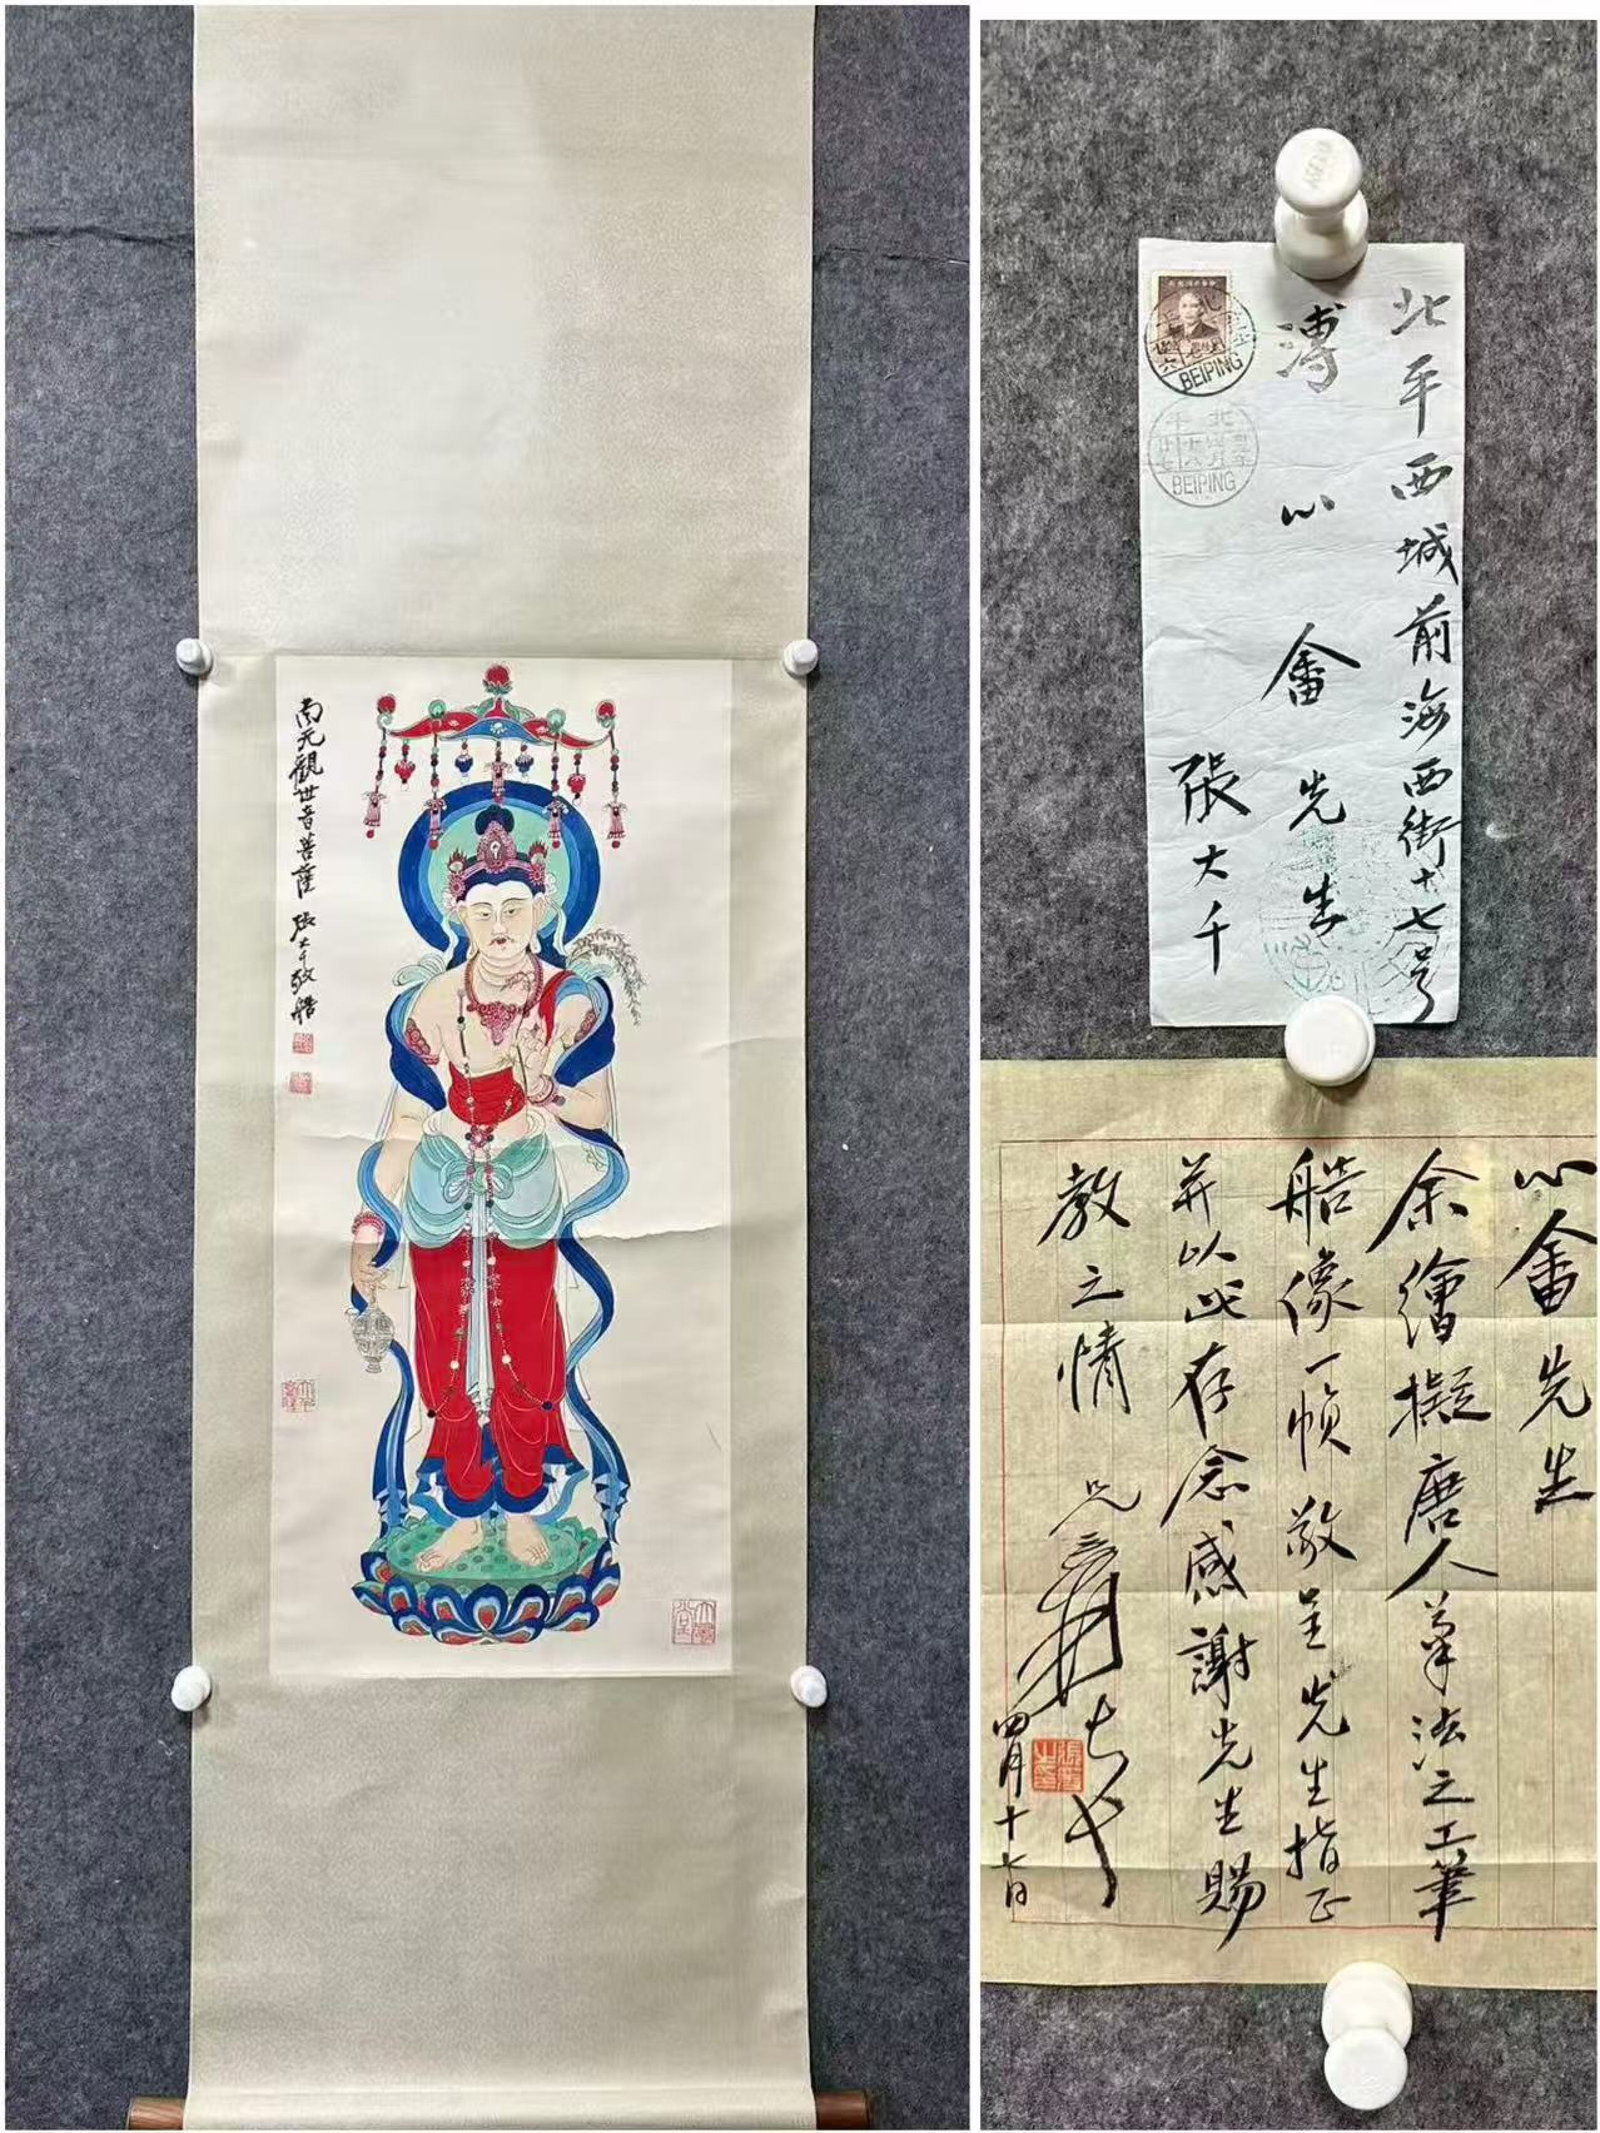 南无觀世音菩薩 張大千敬造
北平西城前海西街十七号
溥心畬先生
張大千
BEIPING
北平
BEIPING
心畬先生
余繪擬唐人筆法之工筆
造像一幀敬呈先生指正
并以此存念感謝先生賜
教之情 兄
張爰大千
四月十七日